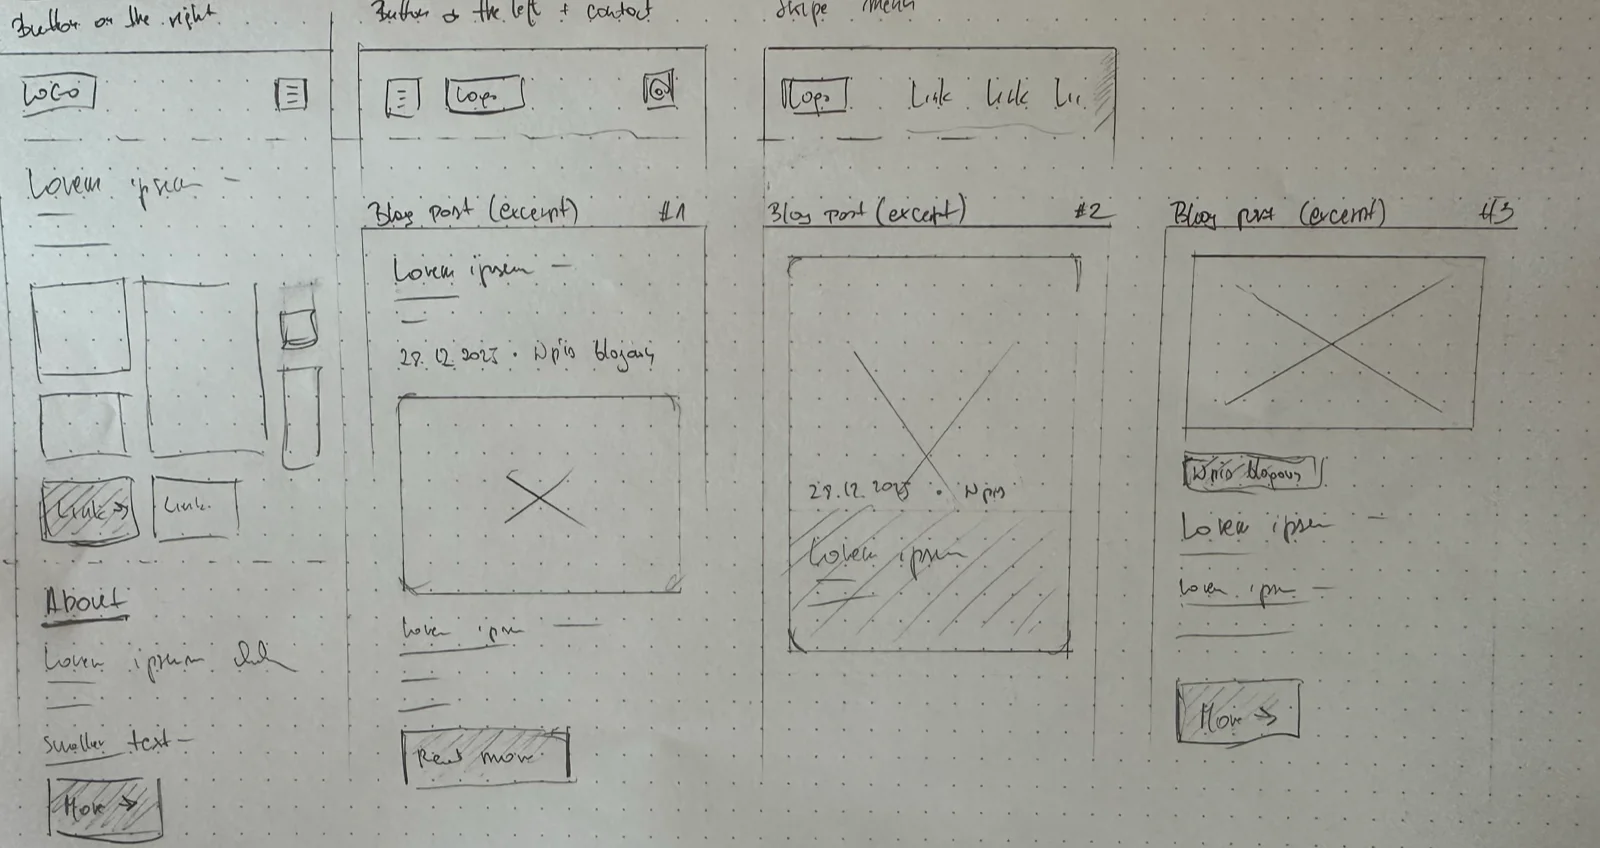 Button on the right
LOGO
Lorem ipsum
Link →
Link
About
Lorem ipsum
Smaller text
More →
Button on the left + contact
Logo
Blog post (excerpt) #1
Lorem ipsum
28.12.2025 • Wpis blogowy
Lorem ipsum
Read more
Swipe menu
Logo Link Link Li
Blog post (excerpt) #2
28.12.2025 • Wpis
Lorem ipsum
Blog post (excerpt) #3
Wpis blogowy
Lorem ipsum
Lorem ipsum
More →